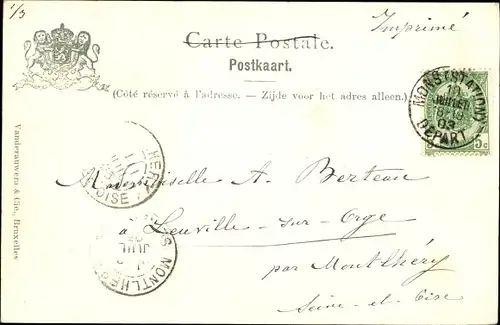 1/3
Imprimé
Carte Postale.
Postkaart.
(Côté réservé à l'adresse. - Zijde voor het adres alleen.)
MONS (STATION)
10
JUILLET
03
DEPART
5c
Mademoiselle A. Berteau
à Leuville-sur-Orge
par Montlhéry
Seine-et-Oise
OISE
MONTLHE
JUIL
Vanderauwera & Cie., Bruxelles